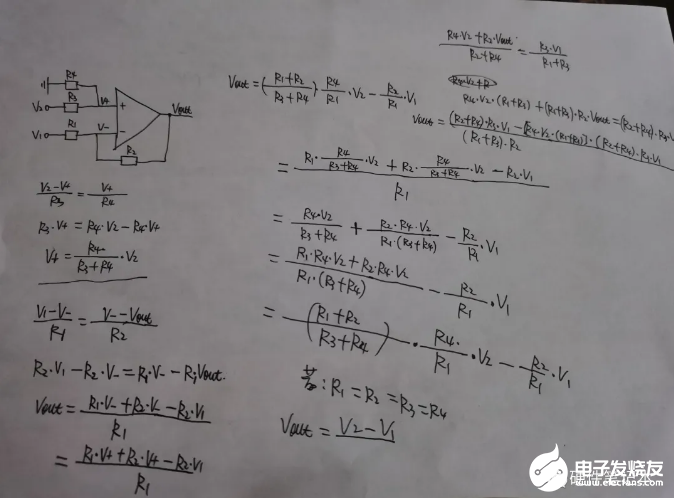 R4
V2 R3 V+ + Vout
V1 R1 V- -
R2
(V2-V+)/R3 = V+/R4
R3·V+ = R4·V2 - R4·V+
V+ = R4/(R3+R4) · V2
(V1-V-)/R1 = (V- - Vout)/R2
R2·V1 - R2·V- = R1·V- - R1Vout.
Vout = (R1·V- + R2·V- - R2·V1)/R1
= (R1·V+ + R2·V+ - R2·V1)/R1
(R4·V2+R3·Vout)/(R2+R4) = R3·V1/(R1+R3)
R4·V2·(R1+R3) + (R1+R3)·R2·Vout
Vout = ((R1+R2)/(R3+R4))·R4/R1·V2 - R2/R1·V1
= (R1·R4/(R3+R4)·V2 + R2·R4/(R3+R4)·V2 - R2·V1)/R1
= R4·V2/(R3+R4) + R2·R4·V2/(R1·(R3+R4)) - R2/R1·V1
= (R1·R4·V2 + R2·R4·V2)/(R1·(R3+R4)) - R2/R1·V1
= ((R1+R2)/(R3+R4))·R4/R1·V2 - R2/R1·V1
若:R1=R2=R3=R4
Vout = V2-V1
电子发烧友
www.elecfans.com